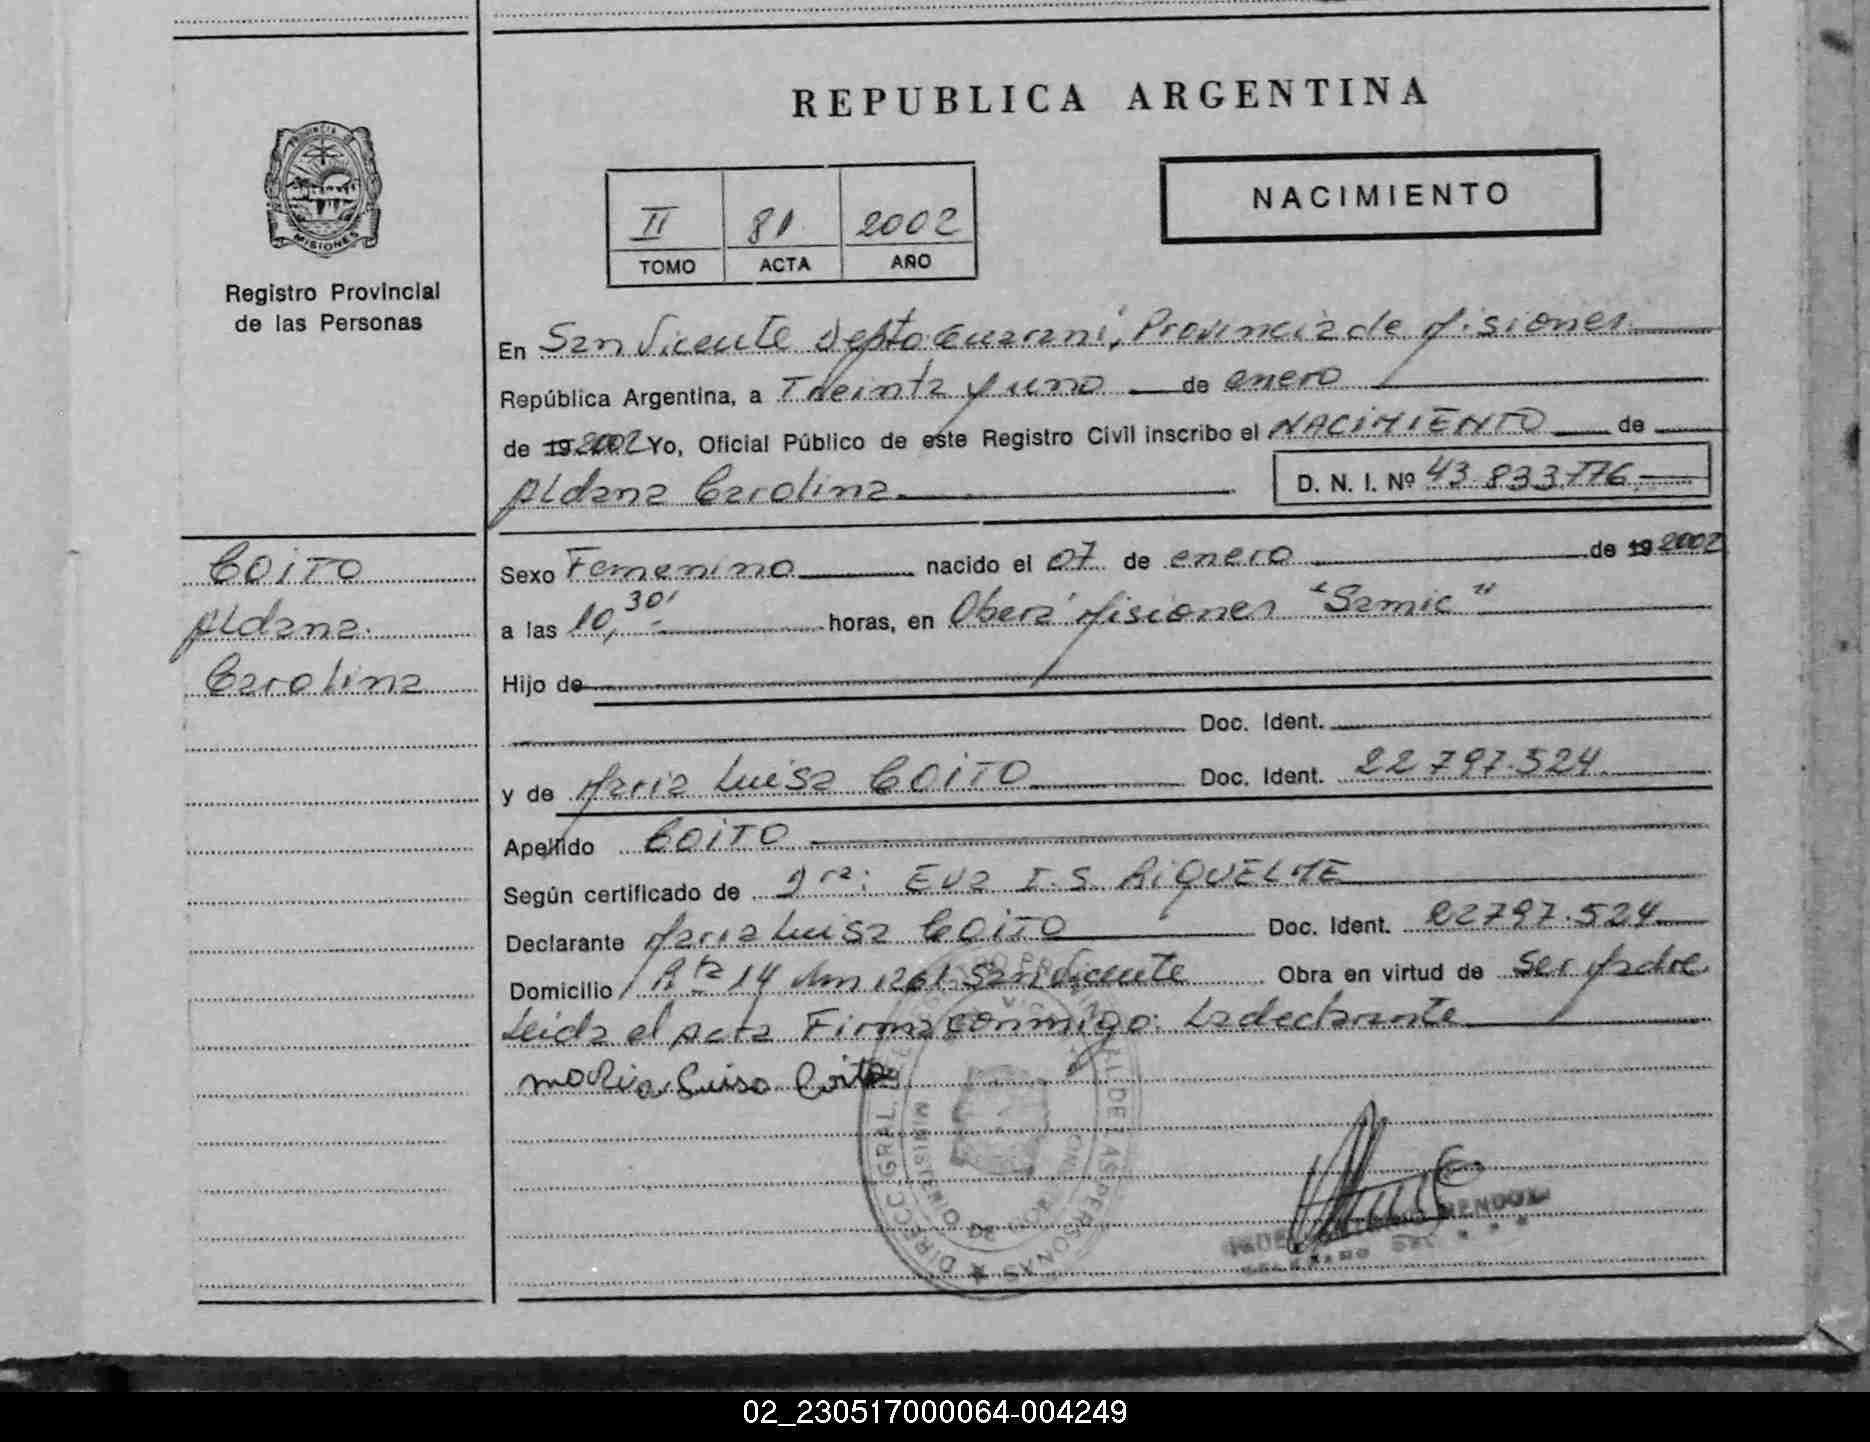 REPUBLICA ARGENTINA
PROVINCIA DE
MISIONES
Registro Provincial
de las Personas
II 81 2002
TOMO ACTA AÑO
NACIMIENTO
En San Vicente Depto Guaraní, Provincia de Misiones
República Argentina, a Treinta y uno de enero
de 19 2002 Yo, Oficial Público de este Registro Civil inscribo el NACIMIENTO de
Aldana Carolina D. N. I. Nº 43.833.776
COITO
Aldana
Carolina
Sexo Femenino nacido el 07 de enero de 19 2002
a las 10,30' horas, en Oberá Misiones "Samic"
Hijo de
Doc. Ident.
y de Maria Luisa COITO Doc. Ident. 22.797.524
Apellido COITO
Según certificado de Dra: Eva I. S. RIQUELME
Declarante Maria Luisa COITO Doc. Ident. 22797.524
Domicilio Rta 14 Km 1261 San Vicente Obra en virtud de ser Madre
Leida el Acta Firma conmigo: La declarante
maria Luisa Coito
DIRECC. GRAL. DE LAS PERSONAS
MINISTERIO
MENDOZA
02_230517000064-004249